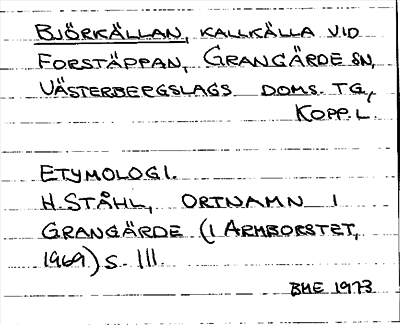 BJÖRKÄLLAN, KALLKÄLLA VID
FORSTÄPPAN, GRANGÄRDE SN,
VÄSTERBERGSLAGS DOMS. TG,
KOPP. L.
ETYMOLOGI.
H. STÅHL, ORTNAMN I
GRANGÄRDE (I ARMBORSTET,
1969) S. 111
BHE 1973